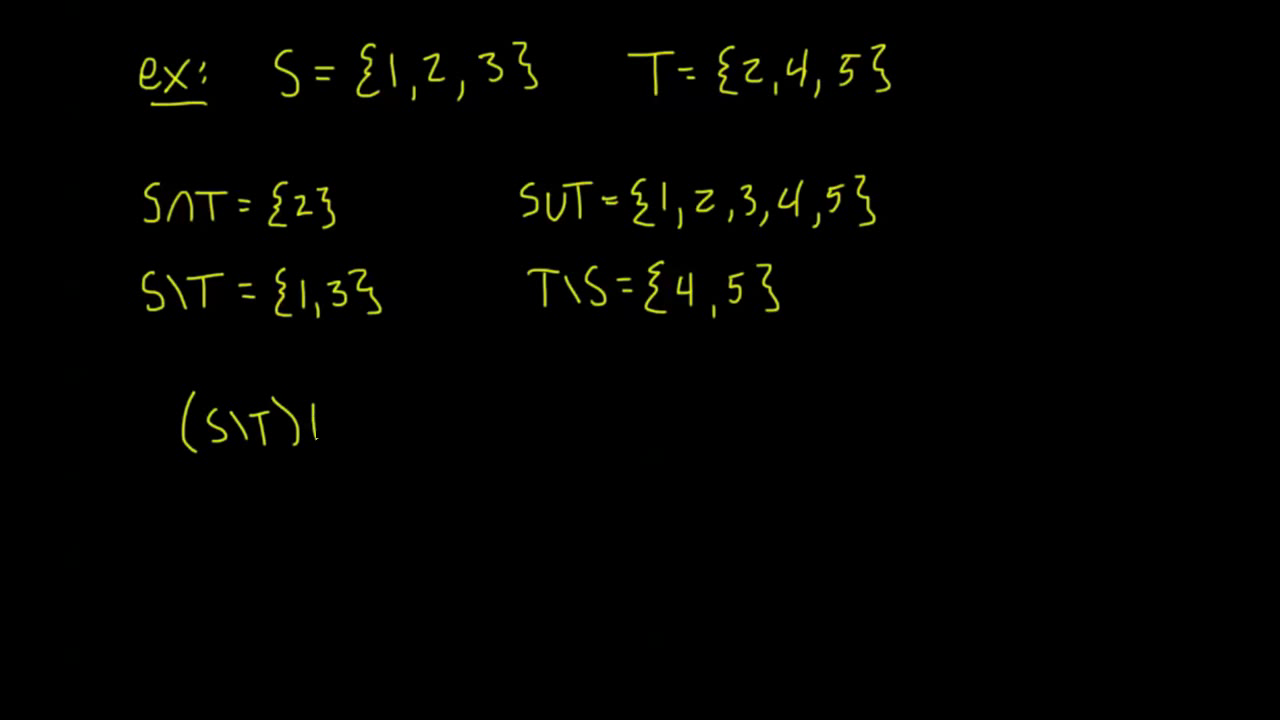 ex: S = {1, 2, 3} T = {2, 4, 5}
S∩T = {2} S∪T = {1, 2, 3, 4, 5}
S\T = {1, 3} T\S = {4, 5}
(S\T) |